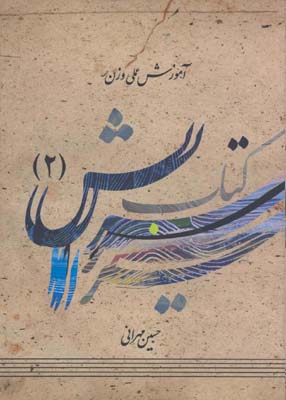 آموزش عملی وزن
کتاب
سرایش (۲)
حسین مهرانی